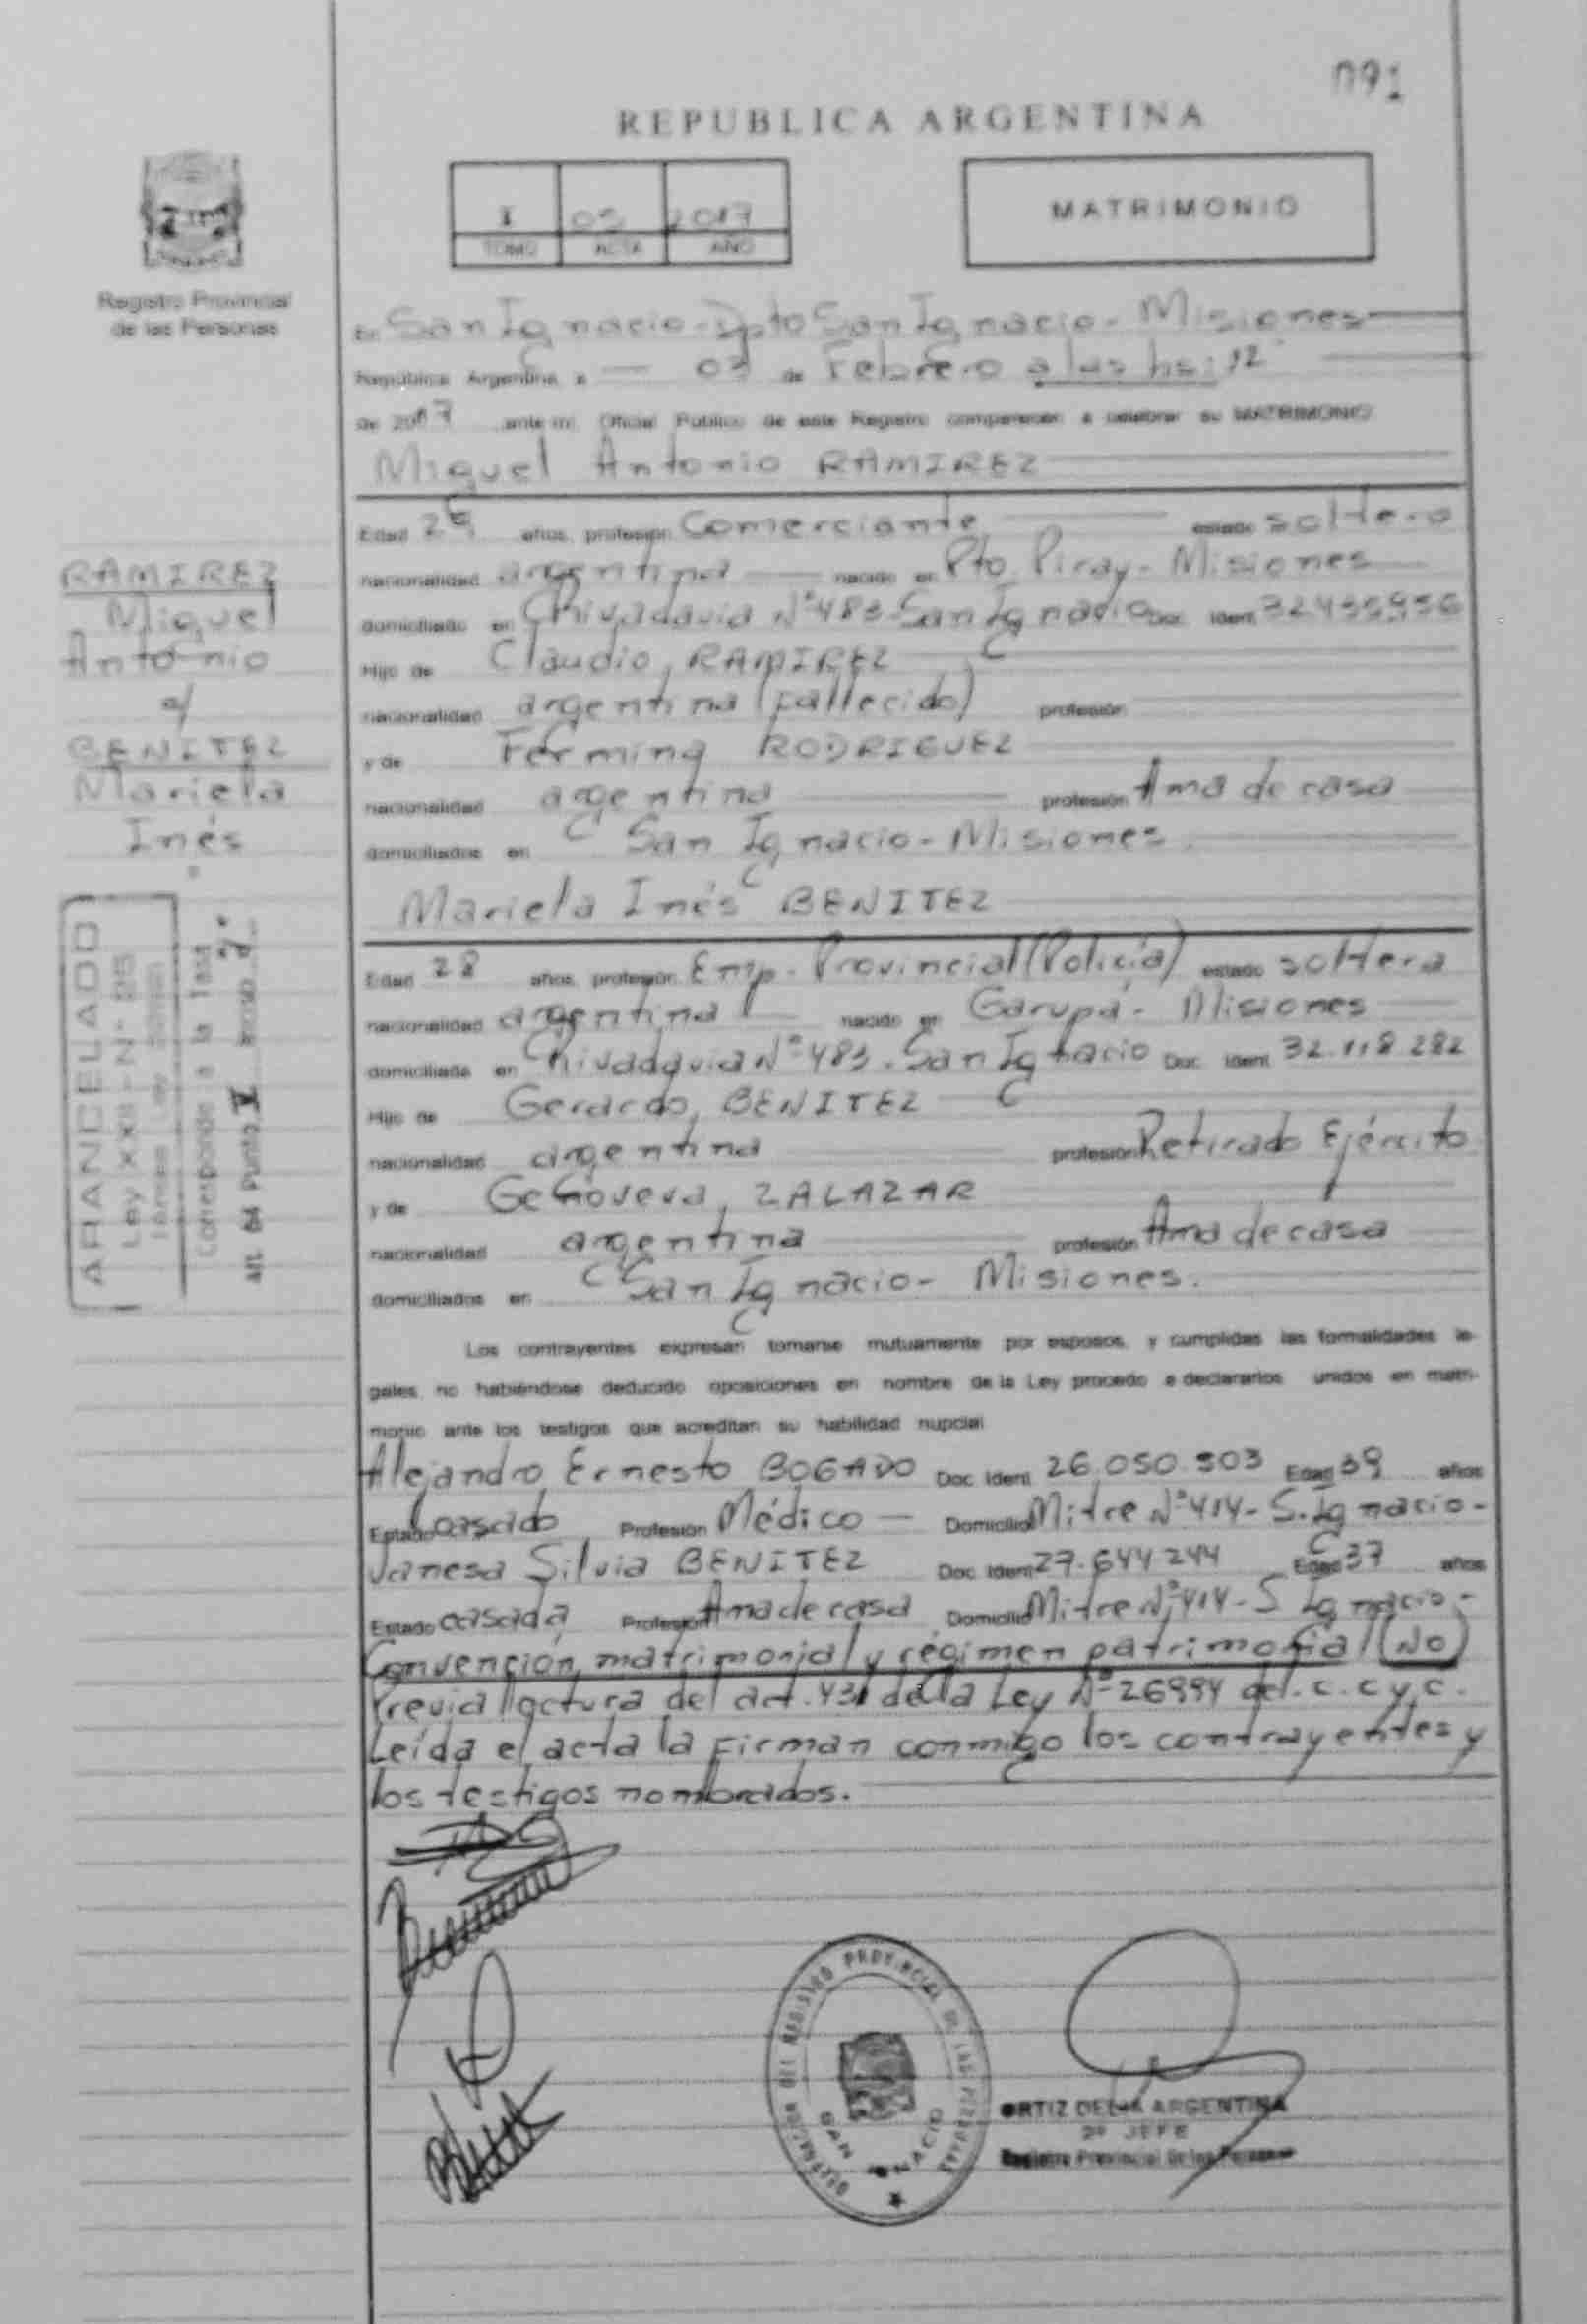 091
REPUBLICA ARGENTINA
I 05 2017
TOMO ACTA AÑO
MATRIMONIO
Registro Provincial
de las Personas
En San Ignacio - Dpto San Ignacio - Misiones
República Argentina a 03 de Febrero a las hs: 12
de 2017 ante mí, Oficial Público de este Registro comparecen a celebrar su MATRIMONIO
Miguel Antonio RAMIREZ
Edad años, profesión Comerciante estado soltero
nacionalidad argentina nacido en Pto. Piray - Misiones
domiciliado en Rivadavia N° 483 - San Ignacio Doc. Ident.
Hijo de Claudio, RAMIREZ
nacionalidad argentina (fallecido) profesión
y de RODRIGUEZ
nacionalidad argentina profesión Ama de casa
domiciliados en San Ignacio - Misiones.
Mariela Inés BENITEZ
Edad 28 años, profesión Emp. Provincial (Policía) estado soltera
nacionalidad argentina nacido en Garupá - Misiones
domiciliada en Rivadavia N° 483 - San Ignacio Doc. Ident. 32.118.282
Hijo de Gerardo, BENITEZ
nacionalidad argentina profesión Retirado Ejército
y de Genoveva, ZALAZAR
nacionalidad argentina profesión Ama de casa
domiciliados en San Ignacio - Misiones.
Los contrayentes expresan tomarse mutuamente por esposos, y cumplidas las formalidades le-
gales, no habiéndose deducido oposiciones en nombre de la Ley procedo a declararlos unidos en matri-
monio ante los testigos que acreditan su habilidad nupcial
Alejandro, Ernesto BOGADO Doc. Ident. 26.050.503 Edad 39 años
Estado casado Profesión Médico — Domicilio Mitre N° 414 - S. Ignacio -
Vanesa Silvia BENITEZ Doc. Ident. 27.644.244 Edad 37 años
Estado casada Profesión Ama de casa Domicilio Mitre N° 414 - S. Ignacio -
Convención matrimonial y régimen patrimonial (NO)
Previa lectura del art. 431 de la Ley N° 26994 del. C. C y. C.
Leída el acta la firman conmigo los contrayentes y
los testigos nombrados.
RAMIREZ
Miguel
Antonio
BENITEZ
Mariela
Inés
ARANCELADO
Ley XXII - N° 95
Corresponde a la Tasa
Art. 64 Punto V Inciso
DEL REGISTRO PROVINCIAL DE LAS PERSONAS
SAN IGNACIO
ORTIZ DELIA ARGENTINA
2° JEFE
Registro Provincial de las Personas